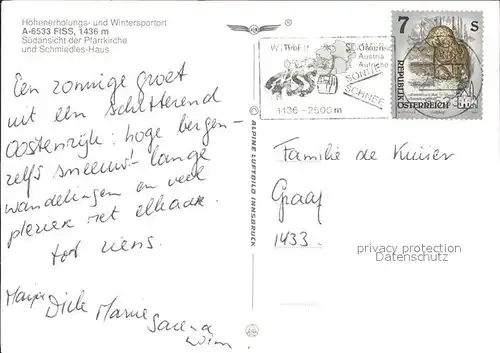 Höhenerholungs- und Wintersportort
A-6533 FISS, 1436 m
Südansicht der Pfarrkirche
und Schmiedles-Haus
Een zonnige groet
uit een schitterend
Oostenrijk: hoge bergen-
zelfs sneeuw!- lange
wandelingen en veel
plezier met elkaar.
tot ziens.
Dick Marnie
7 S
REPUBLIK
ÖSTERREICH
Tirol
Austria
Autriche
FISS
SONNE
SCHNEE
1436-2500 m
ALPINE LUFTBILD INNSBRUCK
Familie de Kuiser
Graaf
1433.
privacy protection
Datenschutz